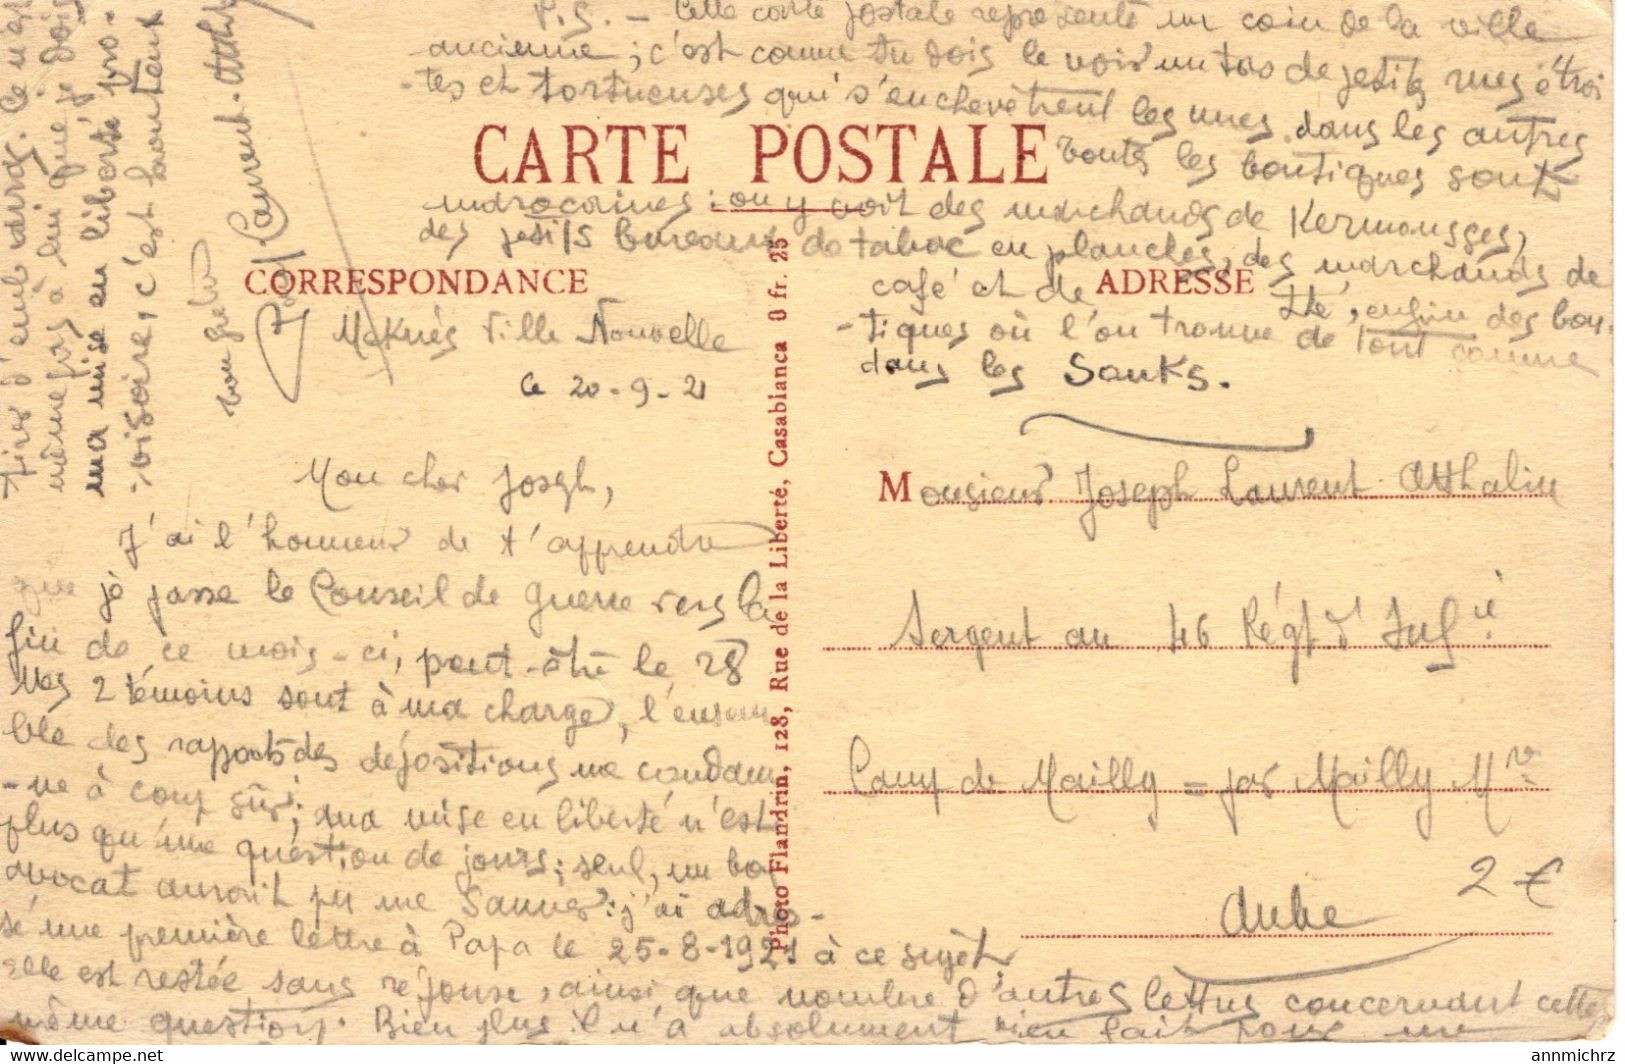 P.S. — Cette carte postale représente un coin de la ville
ancienne ; c'est comme tu dois le voir un tas de petites rues étroi
-tes et tortueuses qui s'enchevêtrent les unes dans les autres
toutes les boutiques sont
marocaines : on y voit des marchands de Kermousses,
des petits bureaux de tabac en planches, des marchands de
café et de thé, enfin des bou-
-tiques où l'on trouve de tout comme
dans les Souks.
CARTE POSTALE
CORRESPONDANCE
ADRESSE
Meknès Ville Nouvelle
le 20-9-21
Mon cher Joseph,
J'ai l'honneur de t'apprendre
que je passe le Conseil de guerre vers la
fin de ce mois-ci, peut-être le 28
Mes 2 témoins sont à ma charge, l'ensem
ble des rapports des dépositions me condam
-ne à coup sûr ; ma mise en liberté n'est
plus qu'une question de jours ; seul, un bon
avocat aurait pu me sauver : j'ai adres-
sé une première lettre à Papa le 25-8-1921 à ce sujet
elle est restée sans réponse, ainsi que nombre d'autres lettres concernant cette
même question. Bien plus il n'a absolument rien fait pour me
tirer d'embarras. Ce n'est
même pas à lui que je dois
ma mise en liberté pro-
-visoire, c'est honteux
ton frère
Paul Laurent-Atthalin
Photo Flandrin, 128, Rue de la Liberté, Casabianca 0 fr. 25
Monsieur Joseph Laurent-Atthalin
Sergent au 46 Régt d'Infie
Camp de Mailly = par Mailly
Aube
2 €
annmichrz